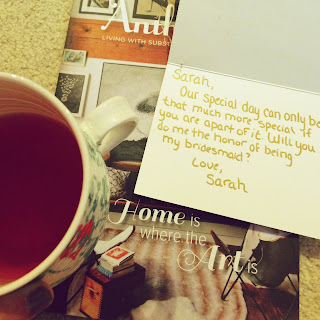 Anth
LIVING WITH SUBS
Sarah,
Our special day can only be
that much more special if
you are apart of it. Will you
do me the honor of being
my bridesmaid?
Love,
Sarah
Home is
where the
Art is